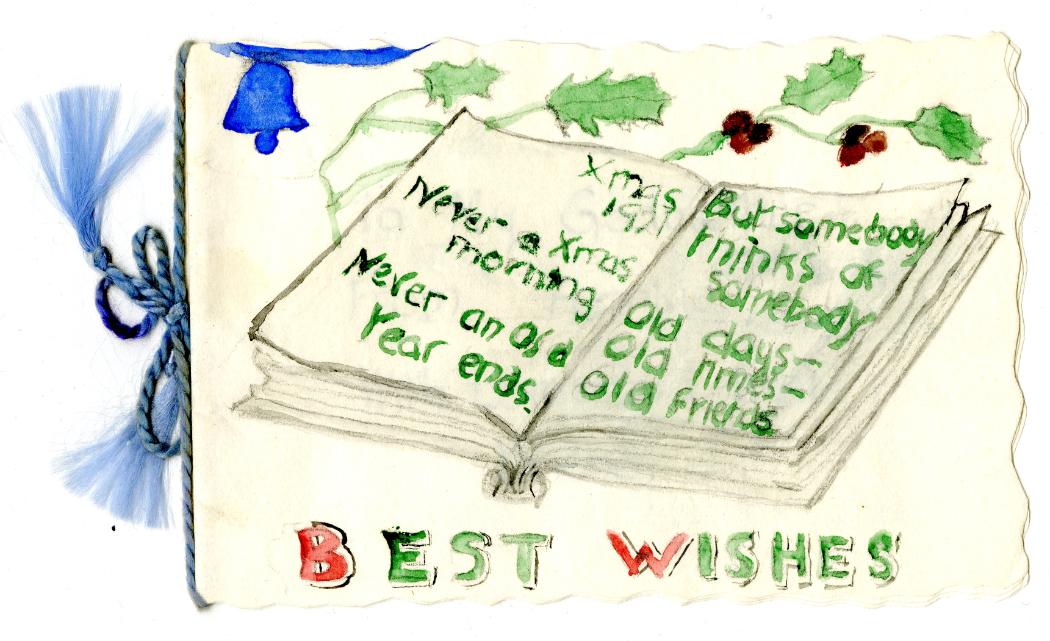 Xmas
1921
Never a Xmas
morning
Never an Old
Year ends.
But somebody
thinks of
somebody
Old days—
Old times—
Old friends.
BEST WISHES